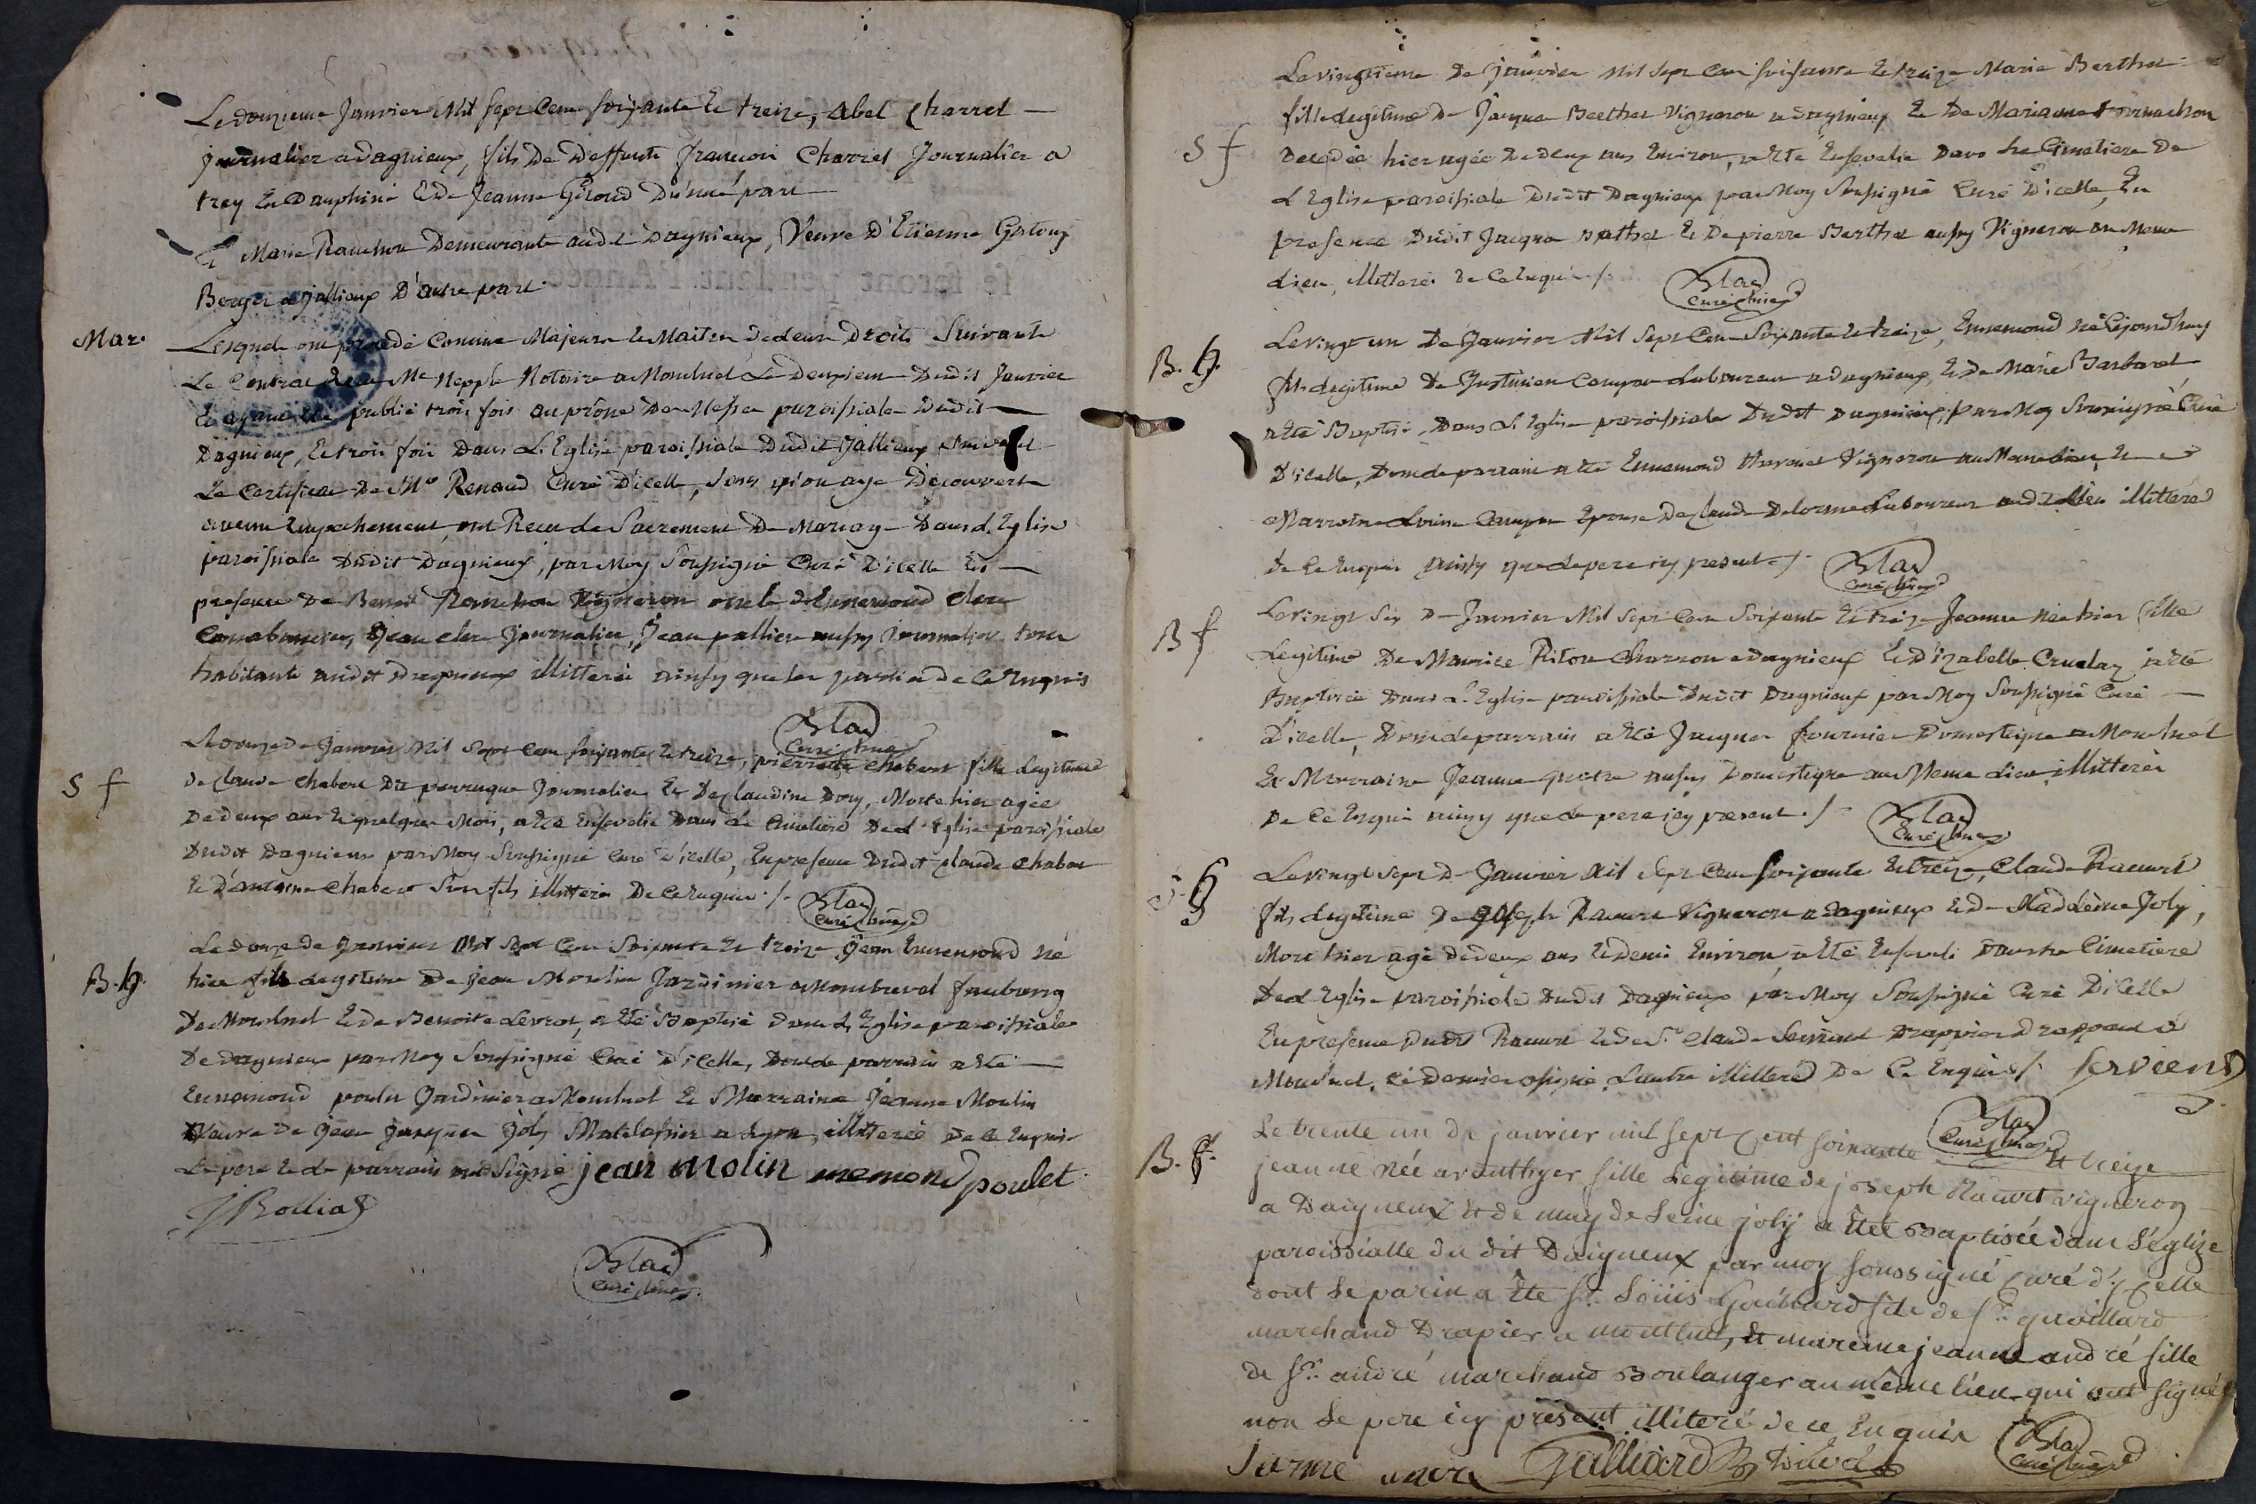 Le douzieme Janvier Mil sept Cent soixante et treize, abel Charret
journalier a dagnieux, fils De Deffunt francois Charret Journalier a
trey En Dauphiné & de Jeanne Giroud D'une part
Et Marie Ranchon Demeurante audit Dagnieux, Veuve D'Etienne
Berger a jallieux D'autre part.
Mar.
Lesquels ont procédé Comme Majeurs et Maitres de leurs Droits Suivant
Le Contrat Me Nepple Notaire a Montluel Le Deuxieme Dudit Janvier
Et ayant été publié trois fois au prône De Messe paroissiale Dudit
Dagnieux, Et trois fois Dans L'Eglise paroissiale Dudit Jallieux suivant
Le Certificat De Mre Renaud Curé D'icelle, sans qu'on aye Découvert
aucun Empechement, ont Recu le Sacrement De Mariage Dans L'Eglise
paroissiale Dudit Dagnieux, par Moy Soussigné Curé D'icelle En
presence De Benoit Ranchon Vigneron oncle d'Ennemond Clerc
Jean Clerc Journalier, Jean pallier aussy Journalier tous
habitants audit Dagnieux illitteré ainsy que les parties de Ce Enquis
Blad
Curé
S f
Le douze de Janvier Mil Sept Cent soixante et treize, pierrette Chabert fille Legitime
de Claude Chabert Dit perruque Journalier Et De Claudine Dory, Morte hier agée
De deux ans et quelques Mois, a été Ensevelie Dans Le Cimetiere De L'Eglise paroissiale
Dudit Dagnieux par Moy Soussigné Curé d'icelle, En presence Dudit Claude Chabert
Et D'antoine Chabert Son fils illitteré De Ce Enquis ./.
Blad
Curé
B. G.
Le douze de Janvier Mil Sept Cent Soixante Et treize, Jean Ennemond né
hier fils Legitime De Jean Moulin Jardinier a Montreval faubourg
De Montluel Et de Benoite Levrat, a été Baptisé Dans L'Eglise paroissiale
De Dagnieux par Moy Soussigné Curé D'icelle, Dont le parrain a été
Ennemond poulet Jardinier a Montluel Et Marraine Jeanne Moulin
Veuve De Jean Jacques Joly Matelassier a Lyon, illitterée De Ce Enquise
Le pere Et Le parrain ont Signé jean molin nemond poulet
Blad
Curé
Le vingtieme De Janvier Mil Sept Cent Soixante Et treize Marie Berthet
fille Legitime De Jacques Berthet Vigneron a Dagnieux Et De Marianne
S f
Decedée hier agée De deux ans Environ, a Eté Ensevelie Dans Le Cimetiere De
L'Eglise paroissiale Dudit Dagnieux par Moy Soussigné Curé D'icelle, En
presence Dudit Jacques Berthet Et De pierre Berthet aussy Vigneron au Meme
Lieu, illitteré De Ce Enquis ./.
Blad
Curé
B. G.
Le vingt un De Janvier Mil Sept Cent Soixante Et treize, Ennemond né Cejourdhuy
fils Legitime De Justinien Laboureur a Dagnieux, Et De Marie Barbaret
a été Baptisé Dans L'Eglise paroissiale Dudit Dagnieux, par Moy Soussigné Curé
D'icelle, Dont le parrain a été Ennemond Vigneron au Meme Lieu, Et
Marraine Louise Epouse De Claude Delorme Laboureur audit Lieu illitterés
De Ce Enquis ainsy que Le pere icy present ./.
Blad
Curé
B f
Le vingt Six De Janvier Mil Sept Cent Soixante Et treize Jeanne née hier fille
Legitime De Maurice Riton Charron a Dagnieux Et D'izabelle a Eté
Baptisée Dans L'Eglise paroissiale Dudit Dagnieux par Moy Soussigné Curé
D'icelle, Dont le parrain a Eté Jacques fournier Domestique a Montluel
Et Marraine Jeanne aussy Domestique au Meme Lieu illitterés
De Ce Enquis ainsy que Le pere icy present ./.
Blad
Curé
S. G
Le vingt Sept De Janvier Mil Sept Cent Soixante Et treize, Claude Racurt
fils Legitime De Joseph Racurt Vigneron a Dagnieux Et De Madeleine Joly,
Mort hier agé De deux ans Et Demi Environ, a Eté Enseveli Dans Le Cimetiere
De L'Eglise paroissiale Dudit Dagnieux par Moy Soussigné Curé D'icelle
En presence Dudit Racurt Et De Sr Claude Servient Drappier drappant a
Montluel, Ce Dernier a Signé, L'autre illitteré De Ce Enquis ./. Servient
Blad
Curé
B. f.
Le trente un de janvier mil sept Cent soixante et treize
jeanne Née avanthyer fille Legitime de joseph Racurt vigneron
a Daigneux et de magdeleine joly a Etée Baptisée dans L'églize
paroissialle du dit Daigneux par moy soussigné curé d'ycelle
dont Le parin a Ete Sr. Loüis Guilliard fils de Sr. guilliard
marchand Drapier a montluel, et mareine jeanne andré fille
de Sr. andré marchand Boulanger au même lieu qui ont signé
non Le pere icy présent illiteré de ce Enquis
Blad
Curé
Guilliard